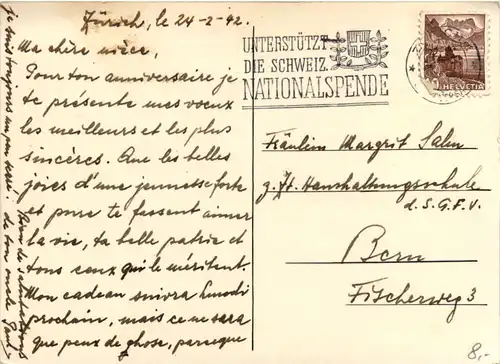 Zürich, le 24-2-42.
Ma chère nièce,
Pour ton anniversaire je
te présente mes voeux
les meilleurs et les plus
sincères. Que les belles
joies d'une jeunesse forte
et pure te fassent aimer
la vie, ta belle patrie et
tous ceux qui le méritent.
Mon cadeau suivra lundi
prochain, mais ce ne sera
que peu de chose, parceque
je suis toujours un peu
de ton oncle Paul
UNTERSTÜTZT
DIE SCHWEIZ.
NATIONALSPENDE
HELVETIA
Fräulein Margrit
z. Zt. Haushaltungsschule
d. S. G. F. V.
Bern
Fischerweg 3
8,-